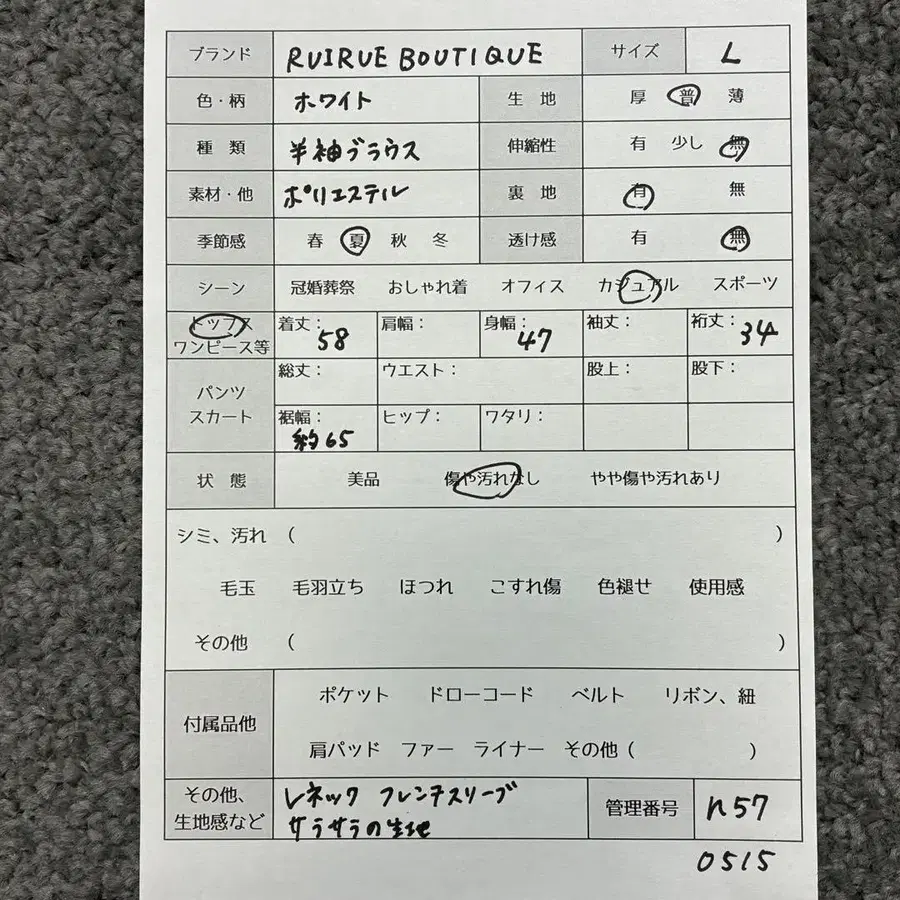 ブランド RUIRUE BOUTIQUE サイズ L
色・柄 ホワイト 生 地 厚 普 薄
種 類 半袖ブラウス 伸縮性 有 少し 無
素材・他 ポリエステル 裏 地 有 無
季節感 春 夏 秋 冬 透け感 有 無
シーン 冠婚葬祭 おしゃれ着 オフィス カジュアル スポーツ
トップス 着丈： 58 肩幅： 身幅： 47 袖丈： 裄丈： 34
ワンピース等
パンツ 総丈： ウエスト： 股上： 股下：
スカート 裾幅： 約65 ヒップ： ワタリ：
状 態 美品 傷や汚れなし やや傷や汚れあり
シミ、汚れ （ ）
毛玉 毛羽立ち ほつれ こすれ傷 色褪せ 使用感
その他 （ ）
付属品他 ポケット ドローコード ベルト リボン、紐
肩パッド ファー ライナー その他（ ）
その他、 Vネック フレンチスリーブ 管理番号 n57
生地感など サラサラの生地
0515